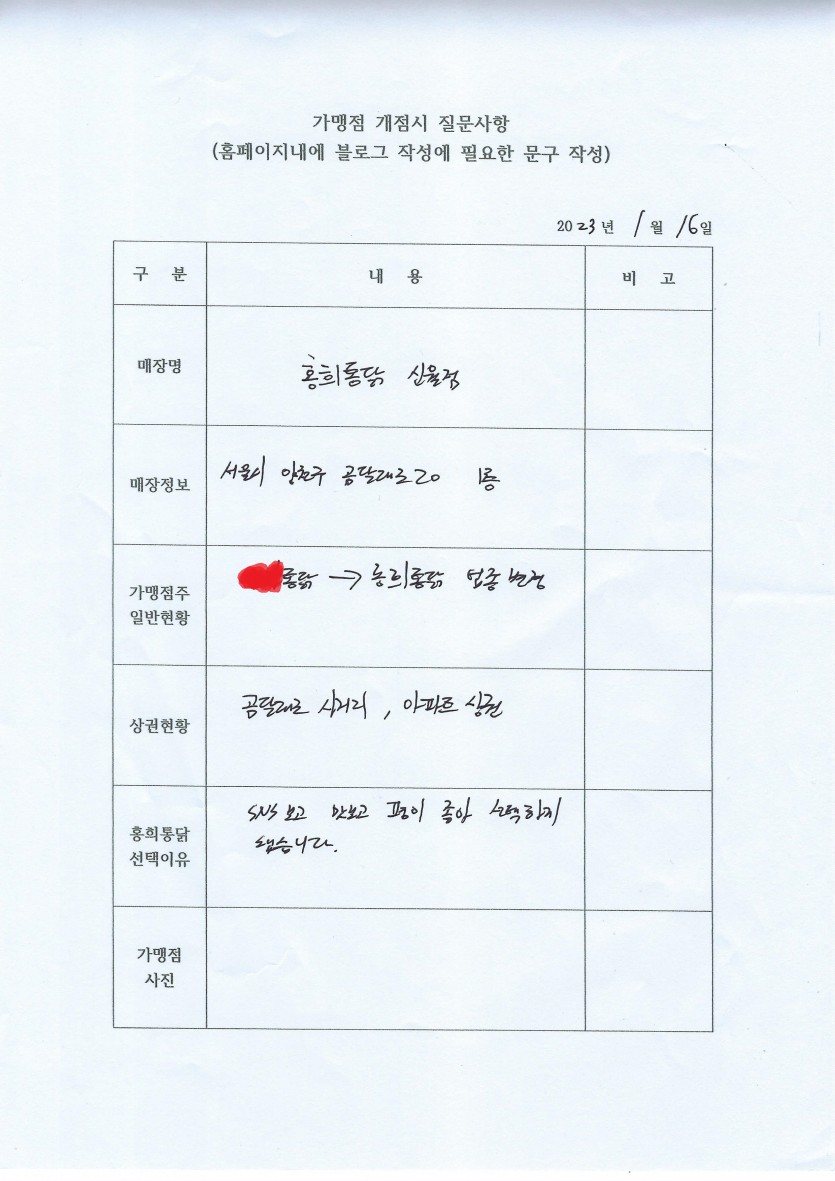 가맹점 개점시 질문사항
(홈페이지내에 블로그 작성에 필요한 문구 작성)
2023년 1월 16일
구 분 내 용 비 고
매장명 홍희통닭 신월점
매장정보 서울시 양천구 곰달래로20 1층
가맹점주
일반현황
통닭 → 홍희통닭 업종변경
상권현황 곰달래로 사거리, 아파트 상권
홍희통닭
선택이유
SNS 보고 맛보고 평이 좋아 선택하게
됐습니다.
가맹점
사진